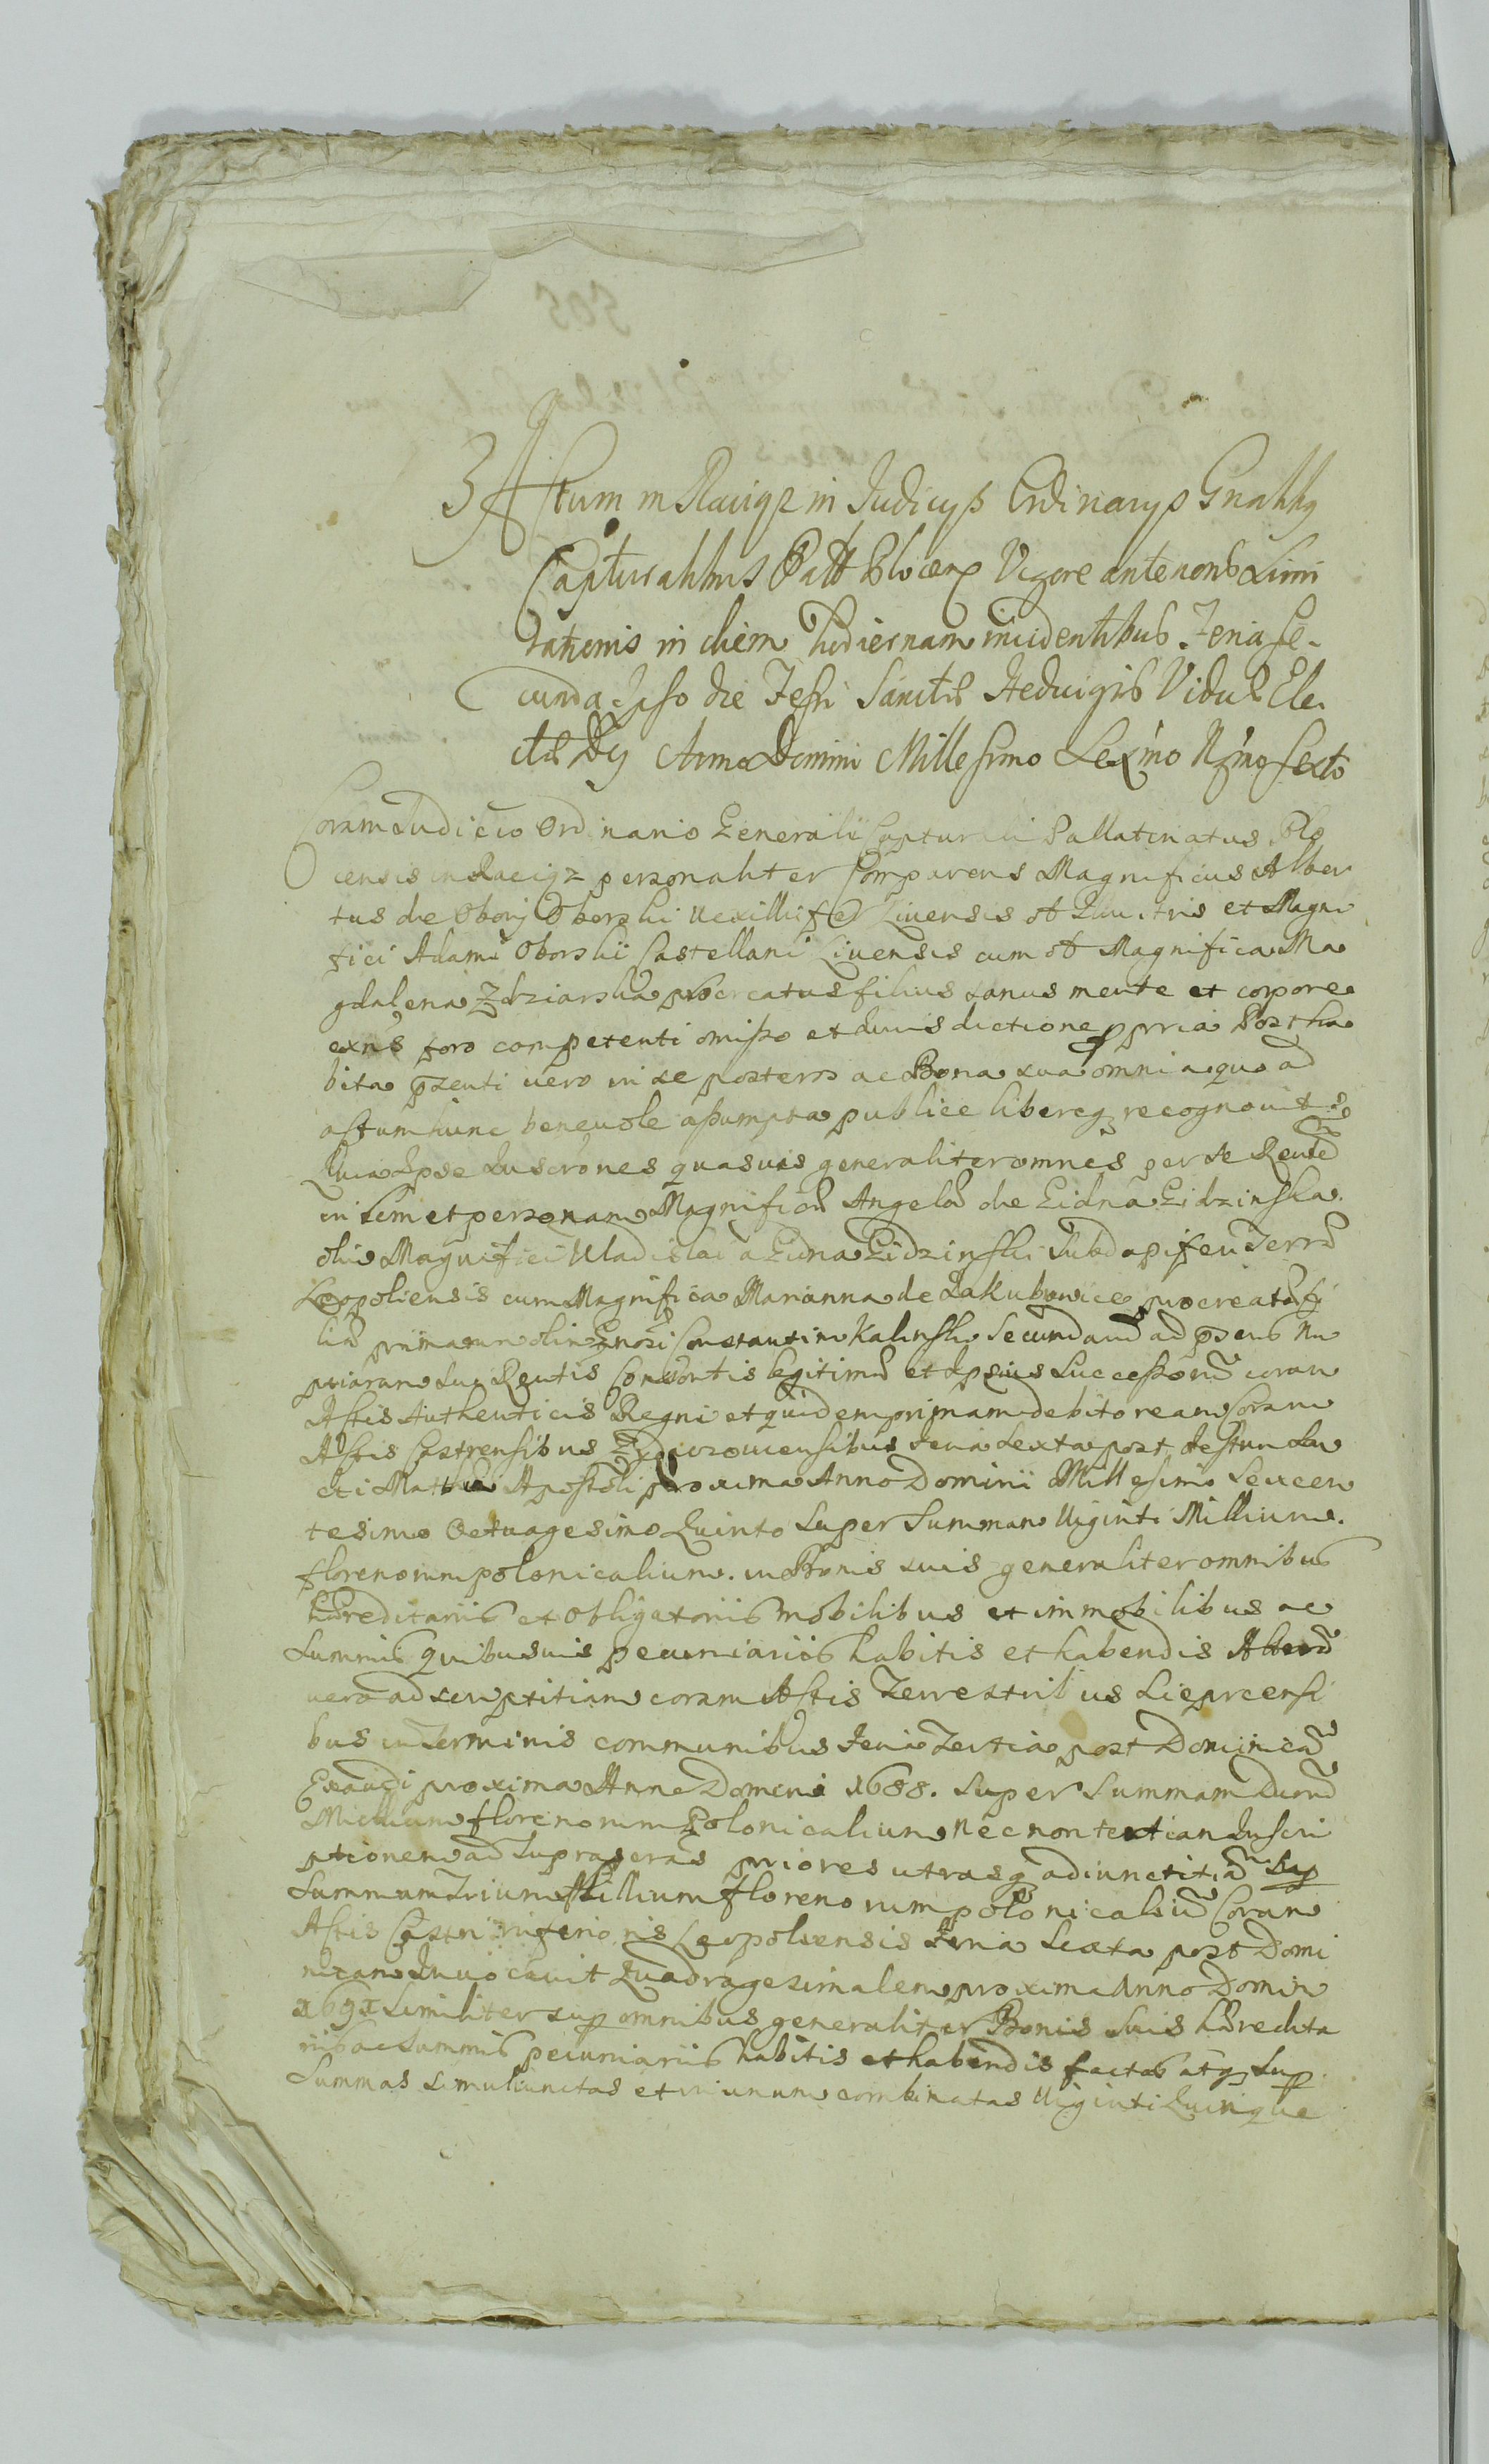 Actum in Raciąz in Judicijs Ordinarijs Gnalibg
Capturalibus Palt Plocen Vigore anterioris Limi
tationis in diem hodiernam incidentibus Feria se-
cunda Ipso die Festi Sanctæ Hedvigis Viduæ Ele-
ctæ Dej Anno Domini Millesimo Sexmo Nzmo sexto
Coram Judicio Ordinario Generali Capturali Pallatinatus Plo
censis in Raciąz personaliter Comparens Magnificus Alber
tus de Obory Oborski Vexillifer Livensis ol Illustris et Magni
fici Adami Oborskii Castellani Livensis cum ol Magnifica Ma
gdalena Zdziarska procreatus filius sanus mente et corpore
exns foro competenti omisso et Jurisdictione ppria Postha
bita pzenti vero in se posteros ac Bona sua omnia quo ad
actum hunc benevole assumpta publice libereq recognovit
Quia Ipse Inscrones quasvis generaliter omnes per se Recntem
in Rem et personam Magnificæ Angelæ de Gidna Gidzinska
olim Magnifici Vladislai a Gidna Gidzinski Subdapiferi Terræ
Leopoliensis cum Magnifica Marianna de Jakubowice procreatæ fi
liæ primarum olim Gnosi Constantini Kalinski Secundarum ad pzens Nu
ptiarum Sui Rcntis Consortis legitimæ et Ipsius Successorum coram
Actis Authenticis Regni et quidem primam debitoream Coram
Actis Castrensibus Zydaczoviensibus Feria Sexta post Festum San
cti Matthæi Apostoli proxima Anno Domini Millesimo Sexcen
tesimo Octuagesimo Quinto Super Summam Viginti Millium
florenorum polonicalium in Bonis suis generaliter omnibus
hæreditariis et Obligatoriis mobilibus et immobilibus ac
Summis quibusvis pecuniariis habitis et habendis Alteram
vero adscriptitiam coram Actis Terrestribus
bus in Terminis communibus Feria Tertia post Dominicam
Exaudi proxima Anno Domini 1688. Super Summam Duorum
Millium florenorum Polonicalium Nec non tertiam Inscri
ptionem ad supraseras priores utrasq adiunctitiam Sup
Summam Trium Millium florenorum polonicalium Coram
Actis Castri inferioris Leopoliensis Feria Sexta post Domi
nicam Invocavit Quadragesimalem proxima Anno Domini
Similiter sup omnibus generaliter Bonis Suis hæredita
riis ac Summis pecuniariis habitis et habendis factas atq Sup
Summas simul iunctas et in unum combinatas Viginti Quinque